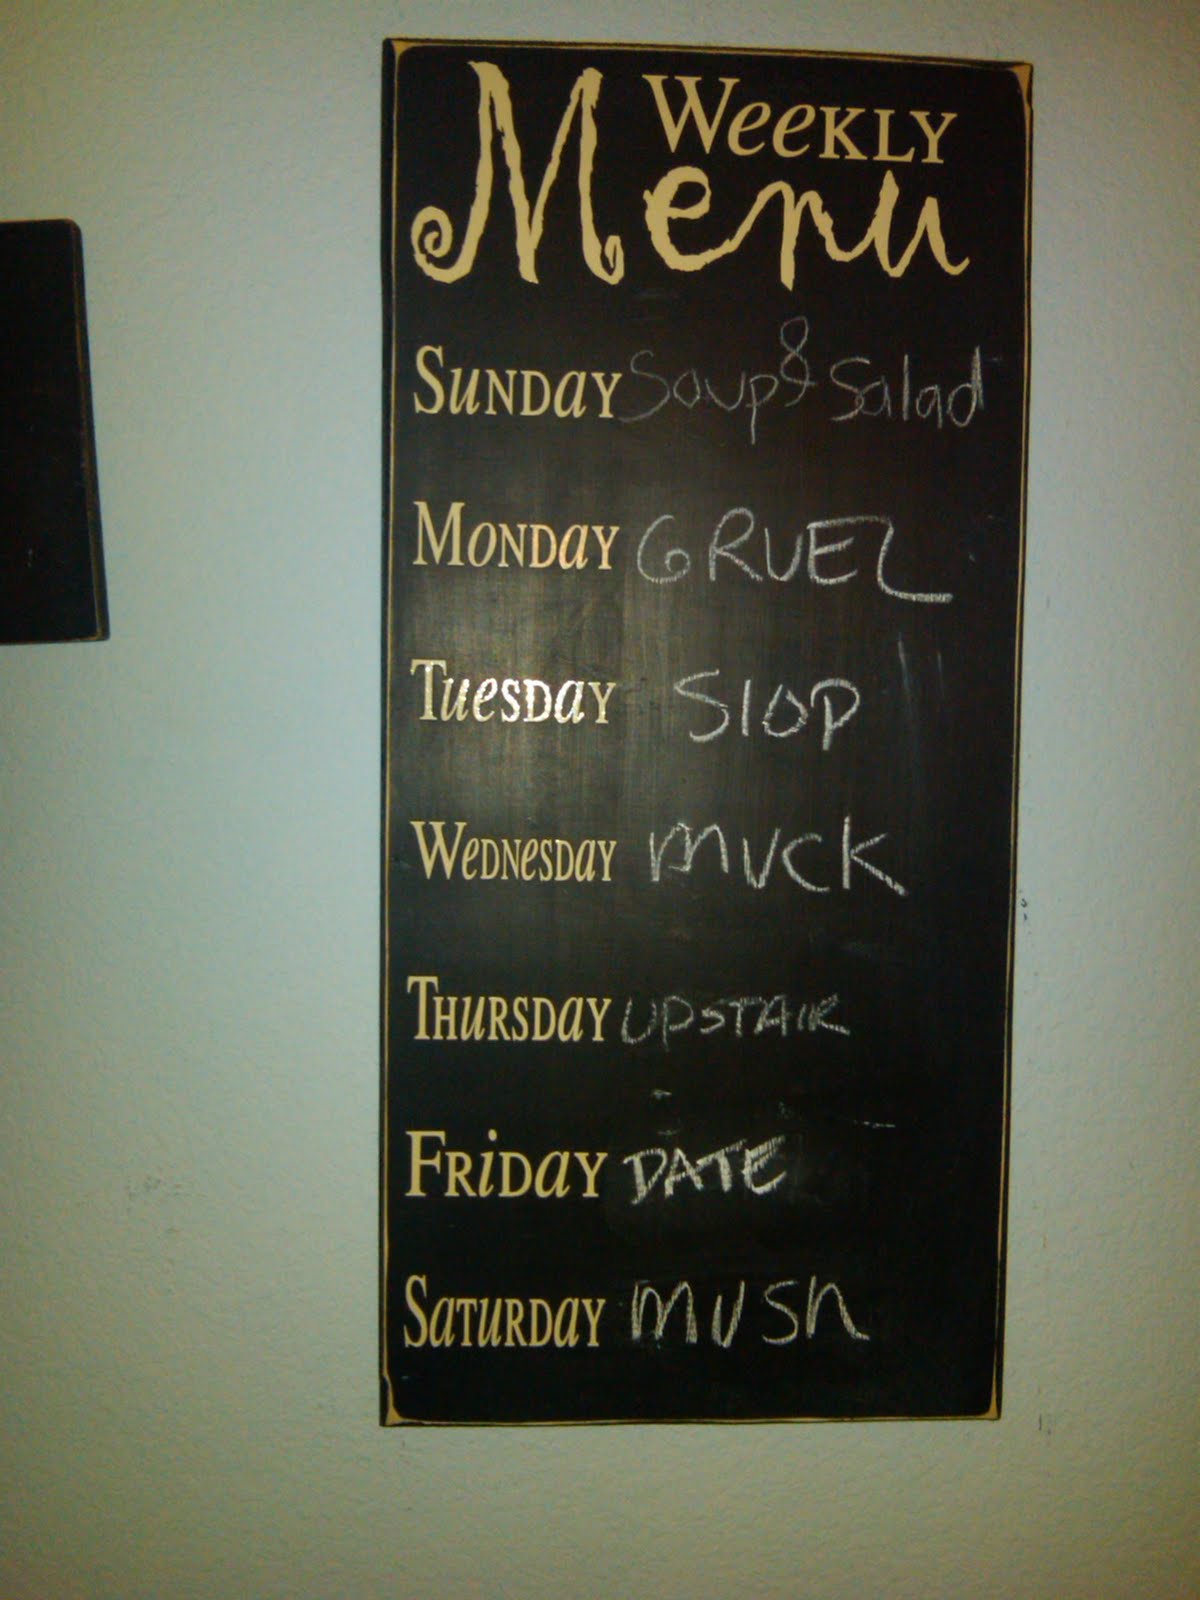 Weekly
Menu
Sunday Soup & Salad
Monday GRUEL
Tuesday Slop
Wednesday MUCK
Thursday UPSTAIR
Friday DATE
Saturday MUSh